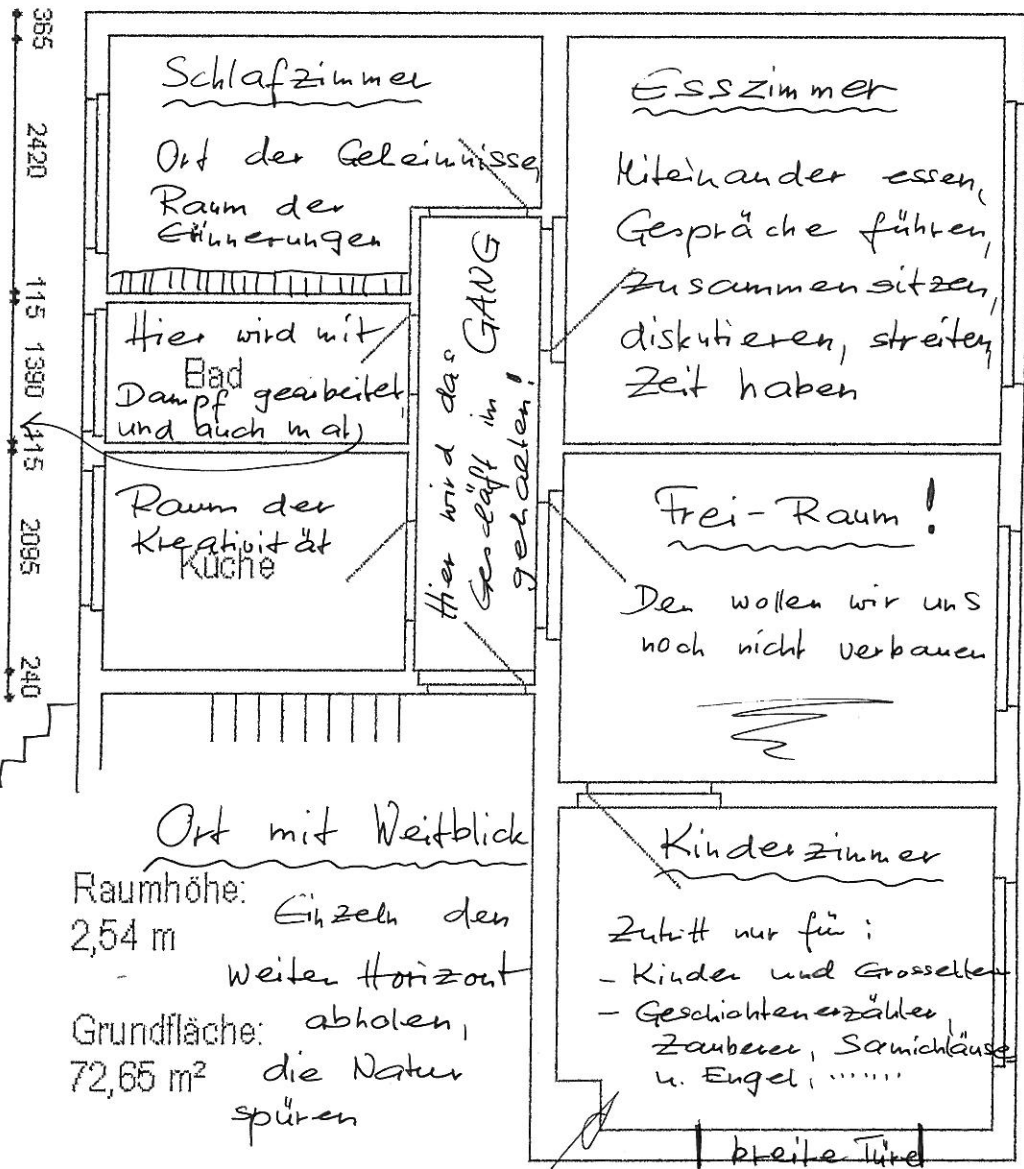 365
2420
115
1390
115
2095
240
Schlafzimmer
Ort der Geheimnisse,
Raum der
Erinnerungen
Hier wird mit
Bad
Dampf gearbeitet
und auch mal
Raum der
Kreativität
Küche
Hier wird das
Geschäft im GANG
gehalten!
Esszimmer
Miteinander essen,
Gespräche führen,
Zusammensitzen,
diskutieren, streiten,
Zeit haben
Frei-Raum!
Den wollen wir uns
noch nicht verbauen
Ort mit Weitblick
Raumhöhe:
2,54 m
Einzeln den
weiten Horizont
abholen,
die Natur
spüren
Grundfläche:
72,65 m²
Kinderzimmer
Zutritt nur für:
- Kinder und Grosselten
- Geschichtenerzähler,
Zauberer, Samichläuse
u. Engel, .......
breite Türe